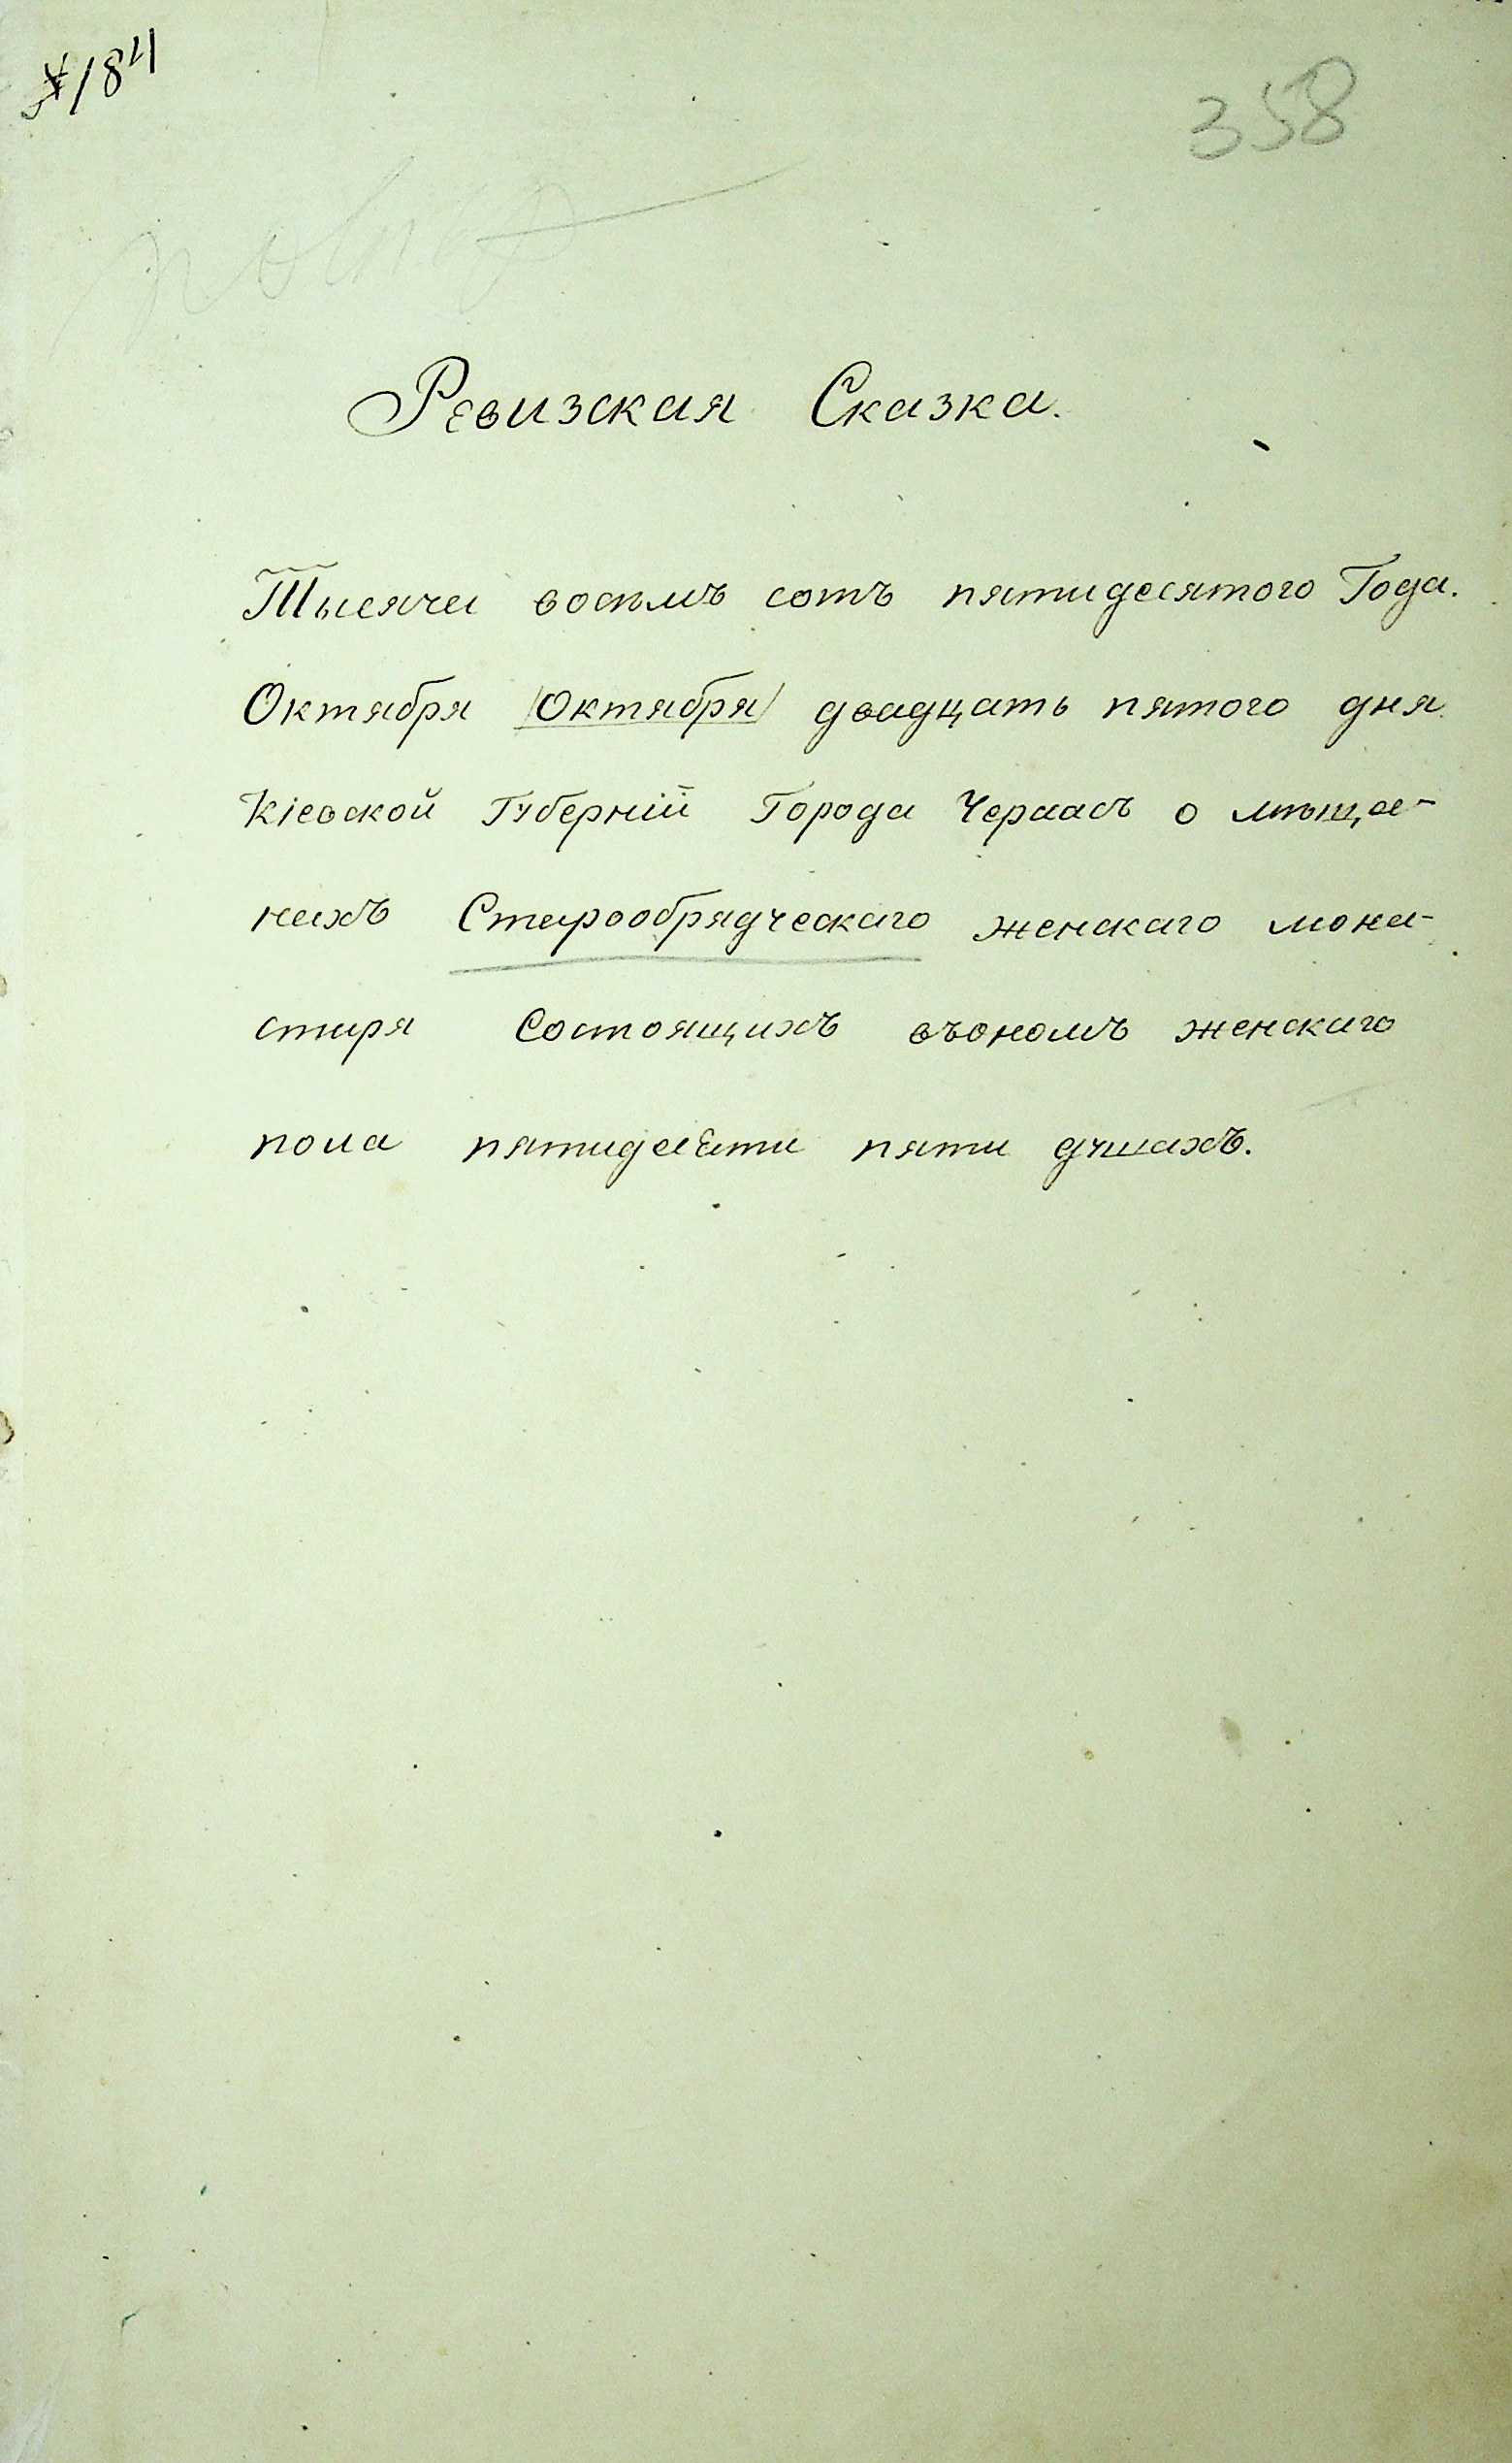 184
358
Ревизская Сказка.
Тысяча восьмъ сотъ пятидесятого Года.
Октября /Октября/ двадцать пятого дня
Кіевской Губерніи Города Черкасъ о мѣща-
нахъ Старообрядческаго женскаго мона-
стиря Состоящихъ въономъ женскаго
пола пятидесяти пяти душахъ.